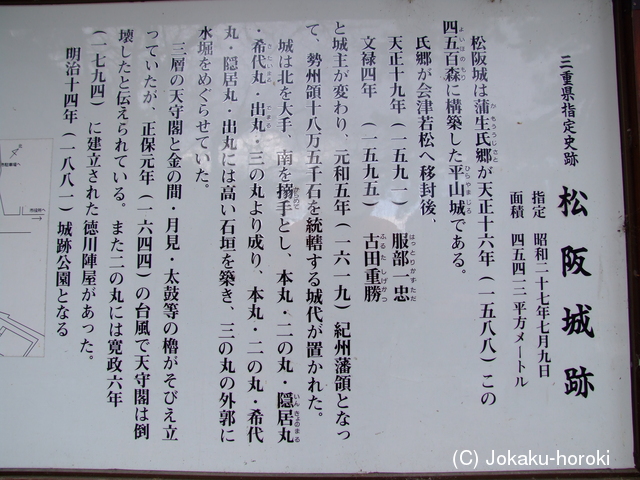 三重県指定史跡
松阪城跡
指定　昭和二十七年七月九日
面積　四五四一三平方メートル
松阪城は蒲生氏郷が天正十六年（一五八八）この
四五百森に構築した平山城である。
氏郷が会津若松へ移封後、
天正十九年（一五九一）　服部一忠
文禄四年　（一五九五）　古田重勝
と城主が変わり、元和五年（一六一九）紀州藩領となっ
て、勢州領十八万五千石を統轄する城代が置かれた。
城は北を大手、南を搦手とし、本丸・二の丸・隠居丸
・希代丸・出丸・三の丸より成り、本丸・二の丸・希代
丸・隠居丸・出丸には高い石垣を築き、三の丸の外郭に
水堀をめぐらせていた。
三層の天守閣と金の間・月見・太鼓等の櫓がそびえ立
っていたが、正保元年（一六四四）の台風で天守閣は倒
壊したと伝えられている。また二の丸には寛政六年
（一七九四）に建立された徳川陣屋があった。
明治十四年（一八八一）城跡公園となる
(C) Jokaku-horoki